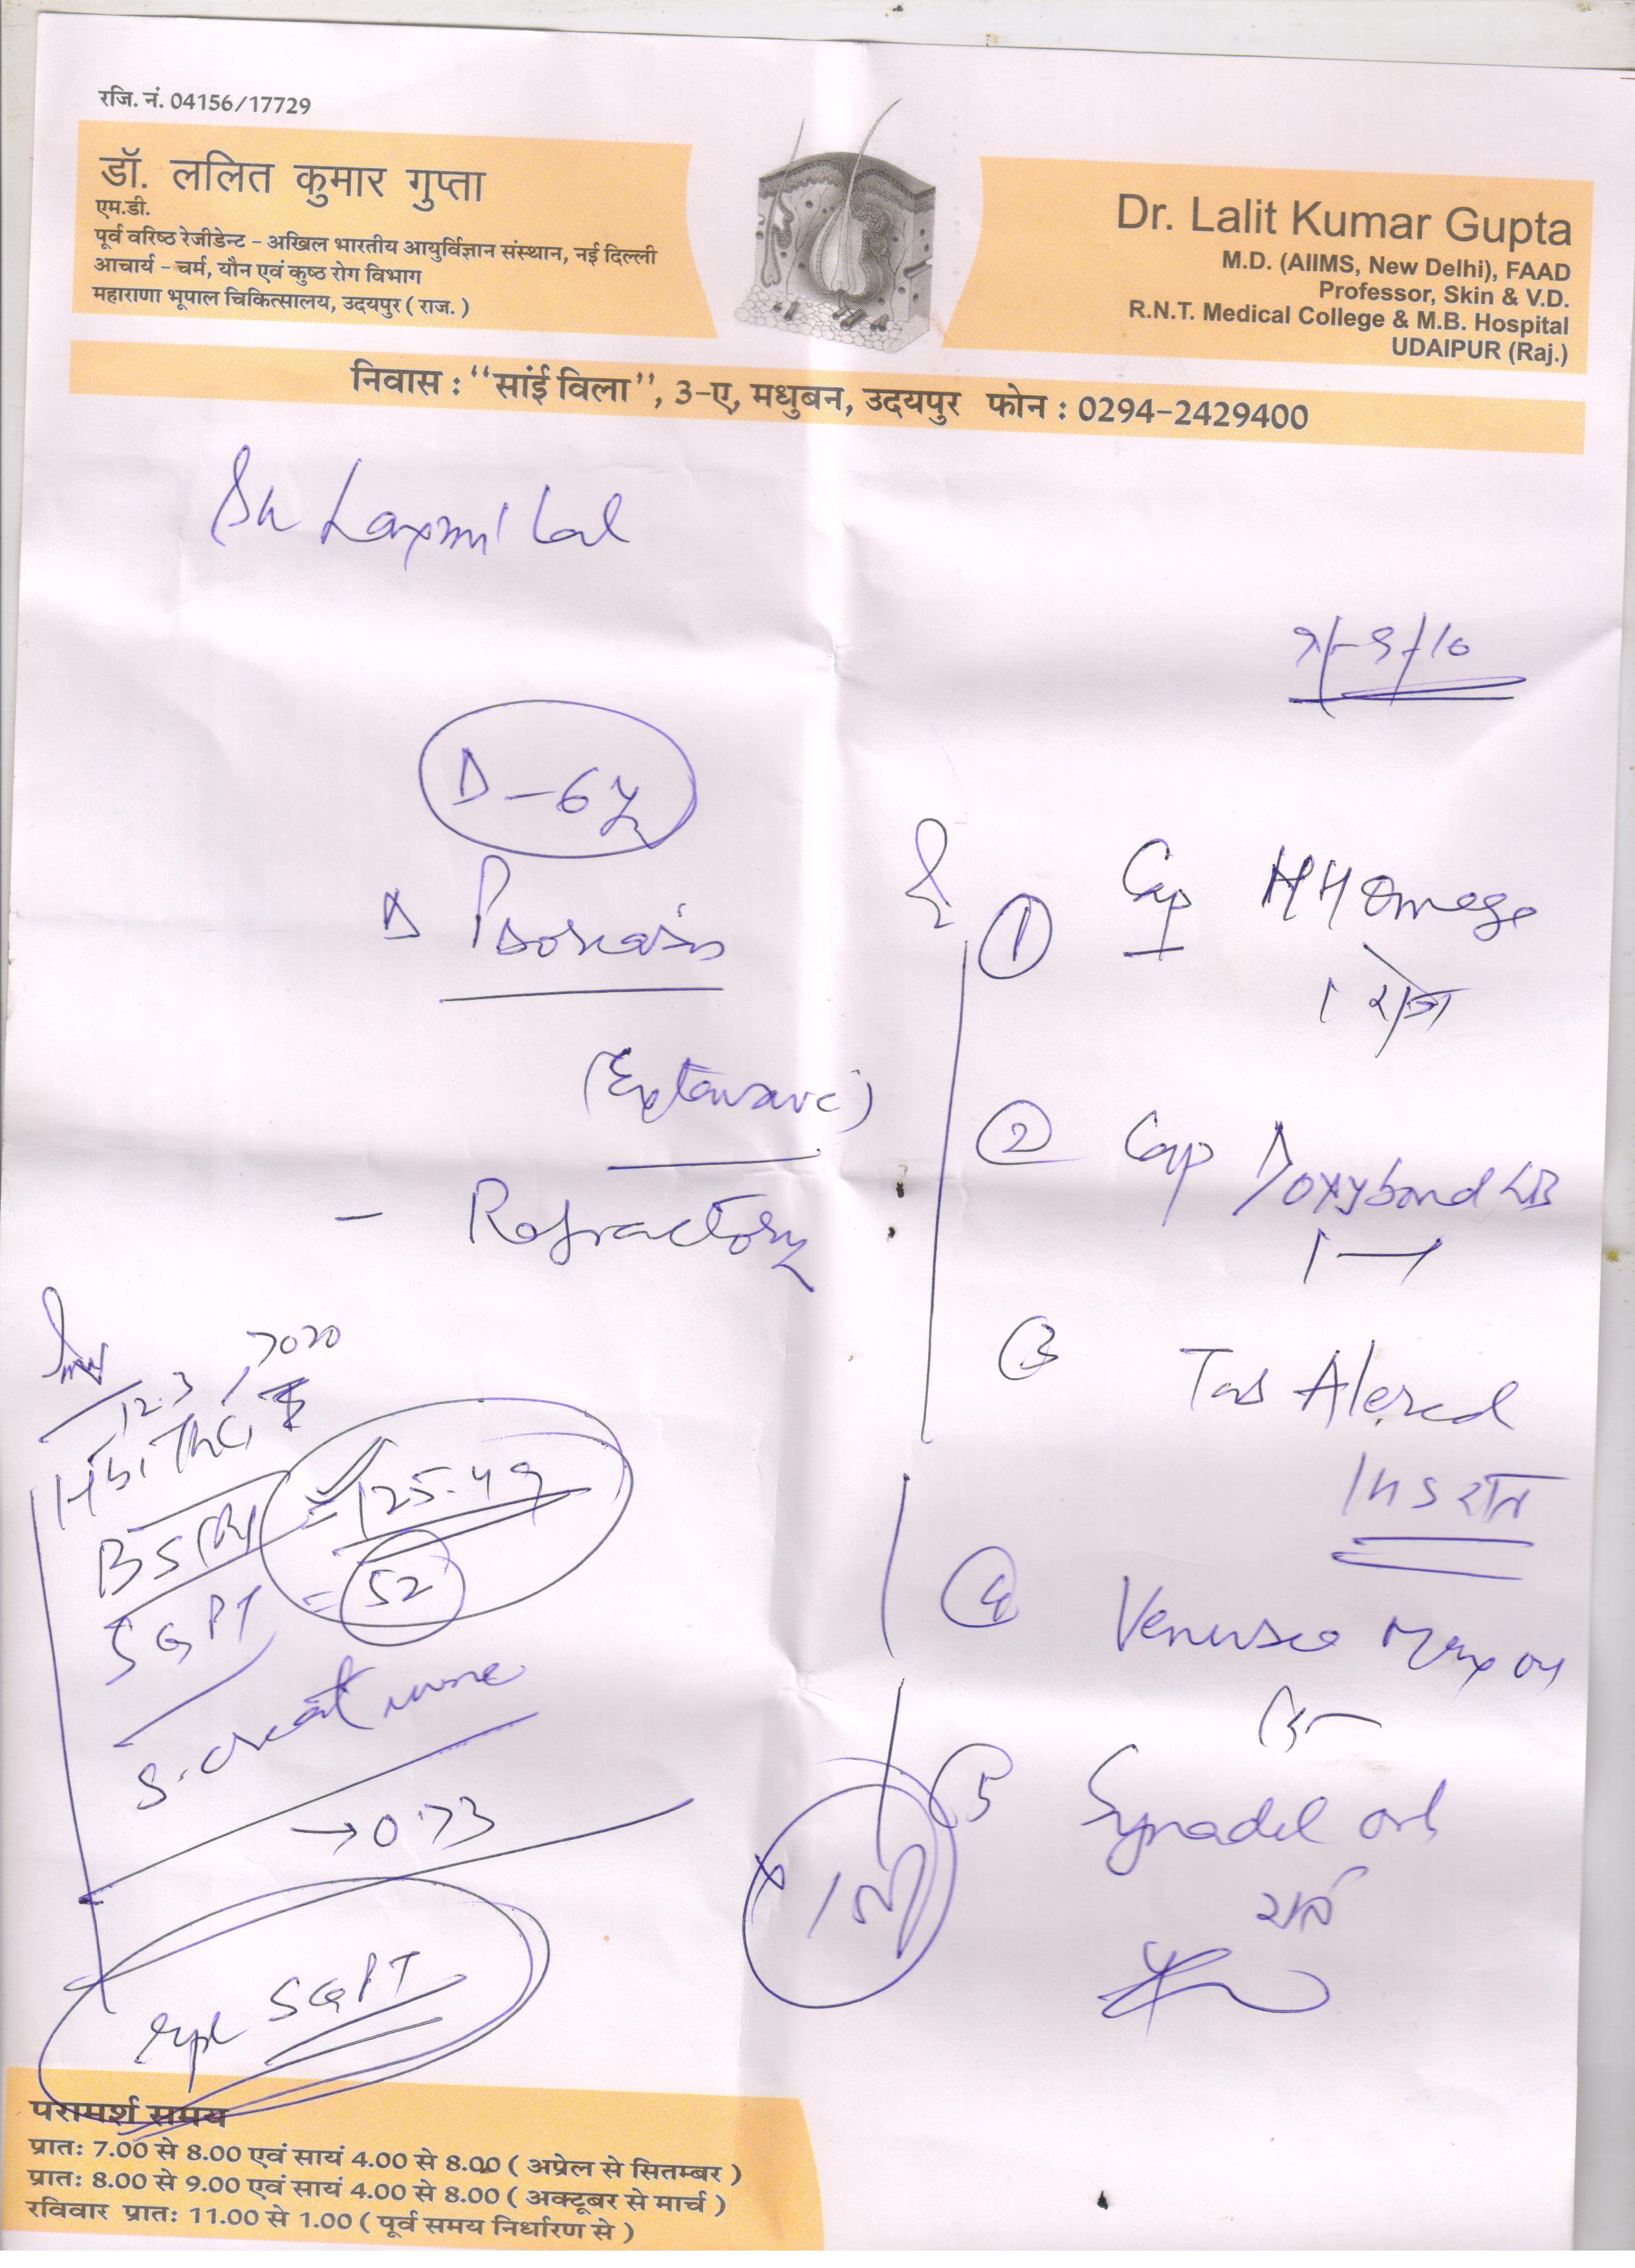 रजि. नं. 04156/17729
डॉ. ललित कुमार गुप्ता
एम.डी.
पूर्व वरिष्ठ रेजीडेन्ट - अखिल भारतीय आयुर्विज्ञान संस्थान, नई दिल्ली
आचार्य - चर्म, यौन एवं कुष्ठ रोग विभाग
महाराणा भूपाल चिकित्सालय, उदयपुर ( राज. )
Dr. Lalit Kumar Gupta
M.D. (AIIMS, New Delhi), FAAD
Professor, Skin & V.D.
R.N.T. Medical College & M.B. Hospital
UDAIPUR (Raj.)
निवास : "सांई विला", 3-ए, मधुबन, उदयपुर फोन : 0294-2429400
Laxmi Lal
D-6y
Δ Psoriasis
(Extensive)
- Refractory
12.3 / 7020
Hb, TLC,
BS (R) = 125.49
SGPT = 52
S. creatinine
→ 0.73
rpt SGPT
① Cap HH Omega
1 रोज
② Cap Doxybond LB
1
③ Tab Alerid
रात
④ Venusia Max
⑤ Synadil
परामर्श समय
प्रातः 7.00 से 8.00 एवं सायं 4.00 से 8.00 ( अप्रेल से सितम्बर )
प्रातः 8.00 से 9.00 एवं सायं 4.00 से 8.00 ( अक्टूबर से मार्च )
रविवार प्रातः 11.00 से 1.00 ( पूर्व समय निर्धारण से )